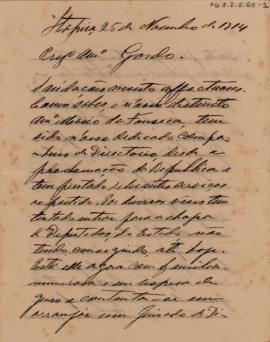 AG 8.2.2.65-1
Itapira, 25 de Novembro de 1914
Prez.º Am.º Gordo.
Saudações muito affectuosas.
Como sabes, o nosso distincto
Am.º Mario da Fonseca tem
sido nosso dedicado compa-
nheiro de Directorio desde a
proclamação da Republica e
tem prestado relevantes serviços
ao partido. Por diversas vezes tem
tentado entrar para a chapa
de Deputados, do Estado não
tendo conseguido, até hoje.
Está elle agora com familia
numerosa e em vespera de
e contenta-se em
arranjar um Juizado de Di-